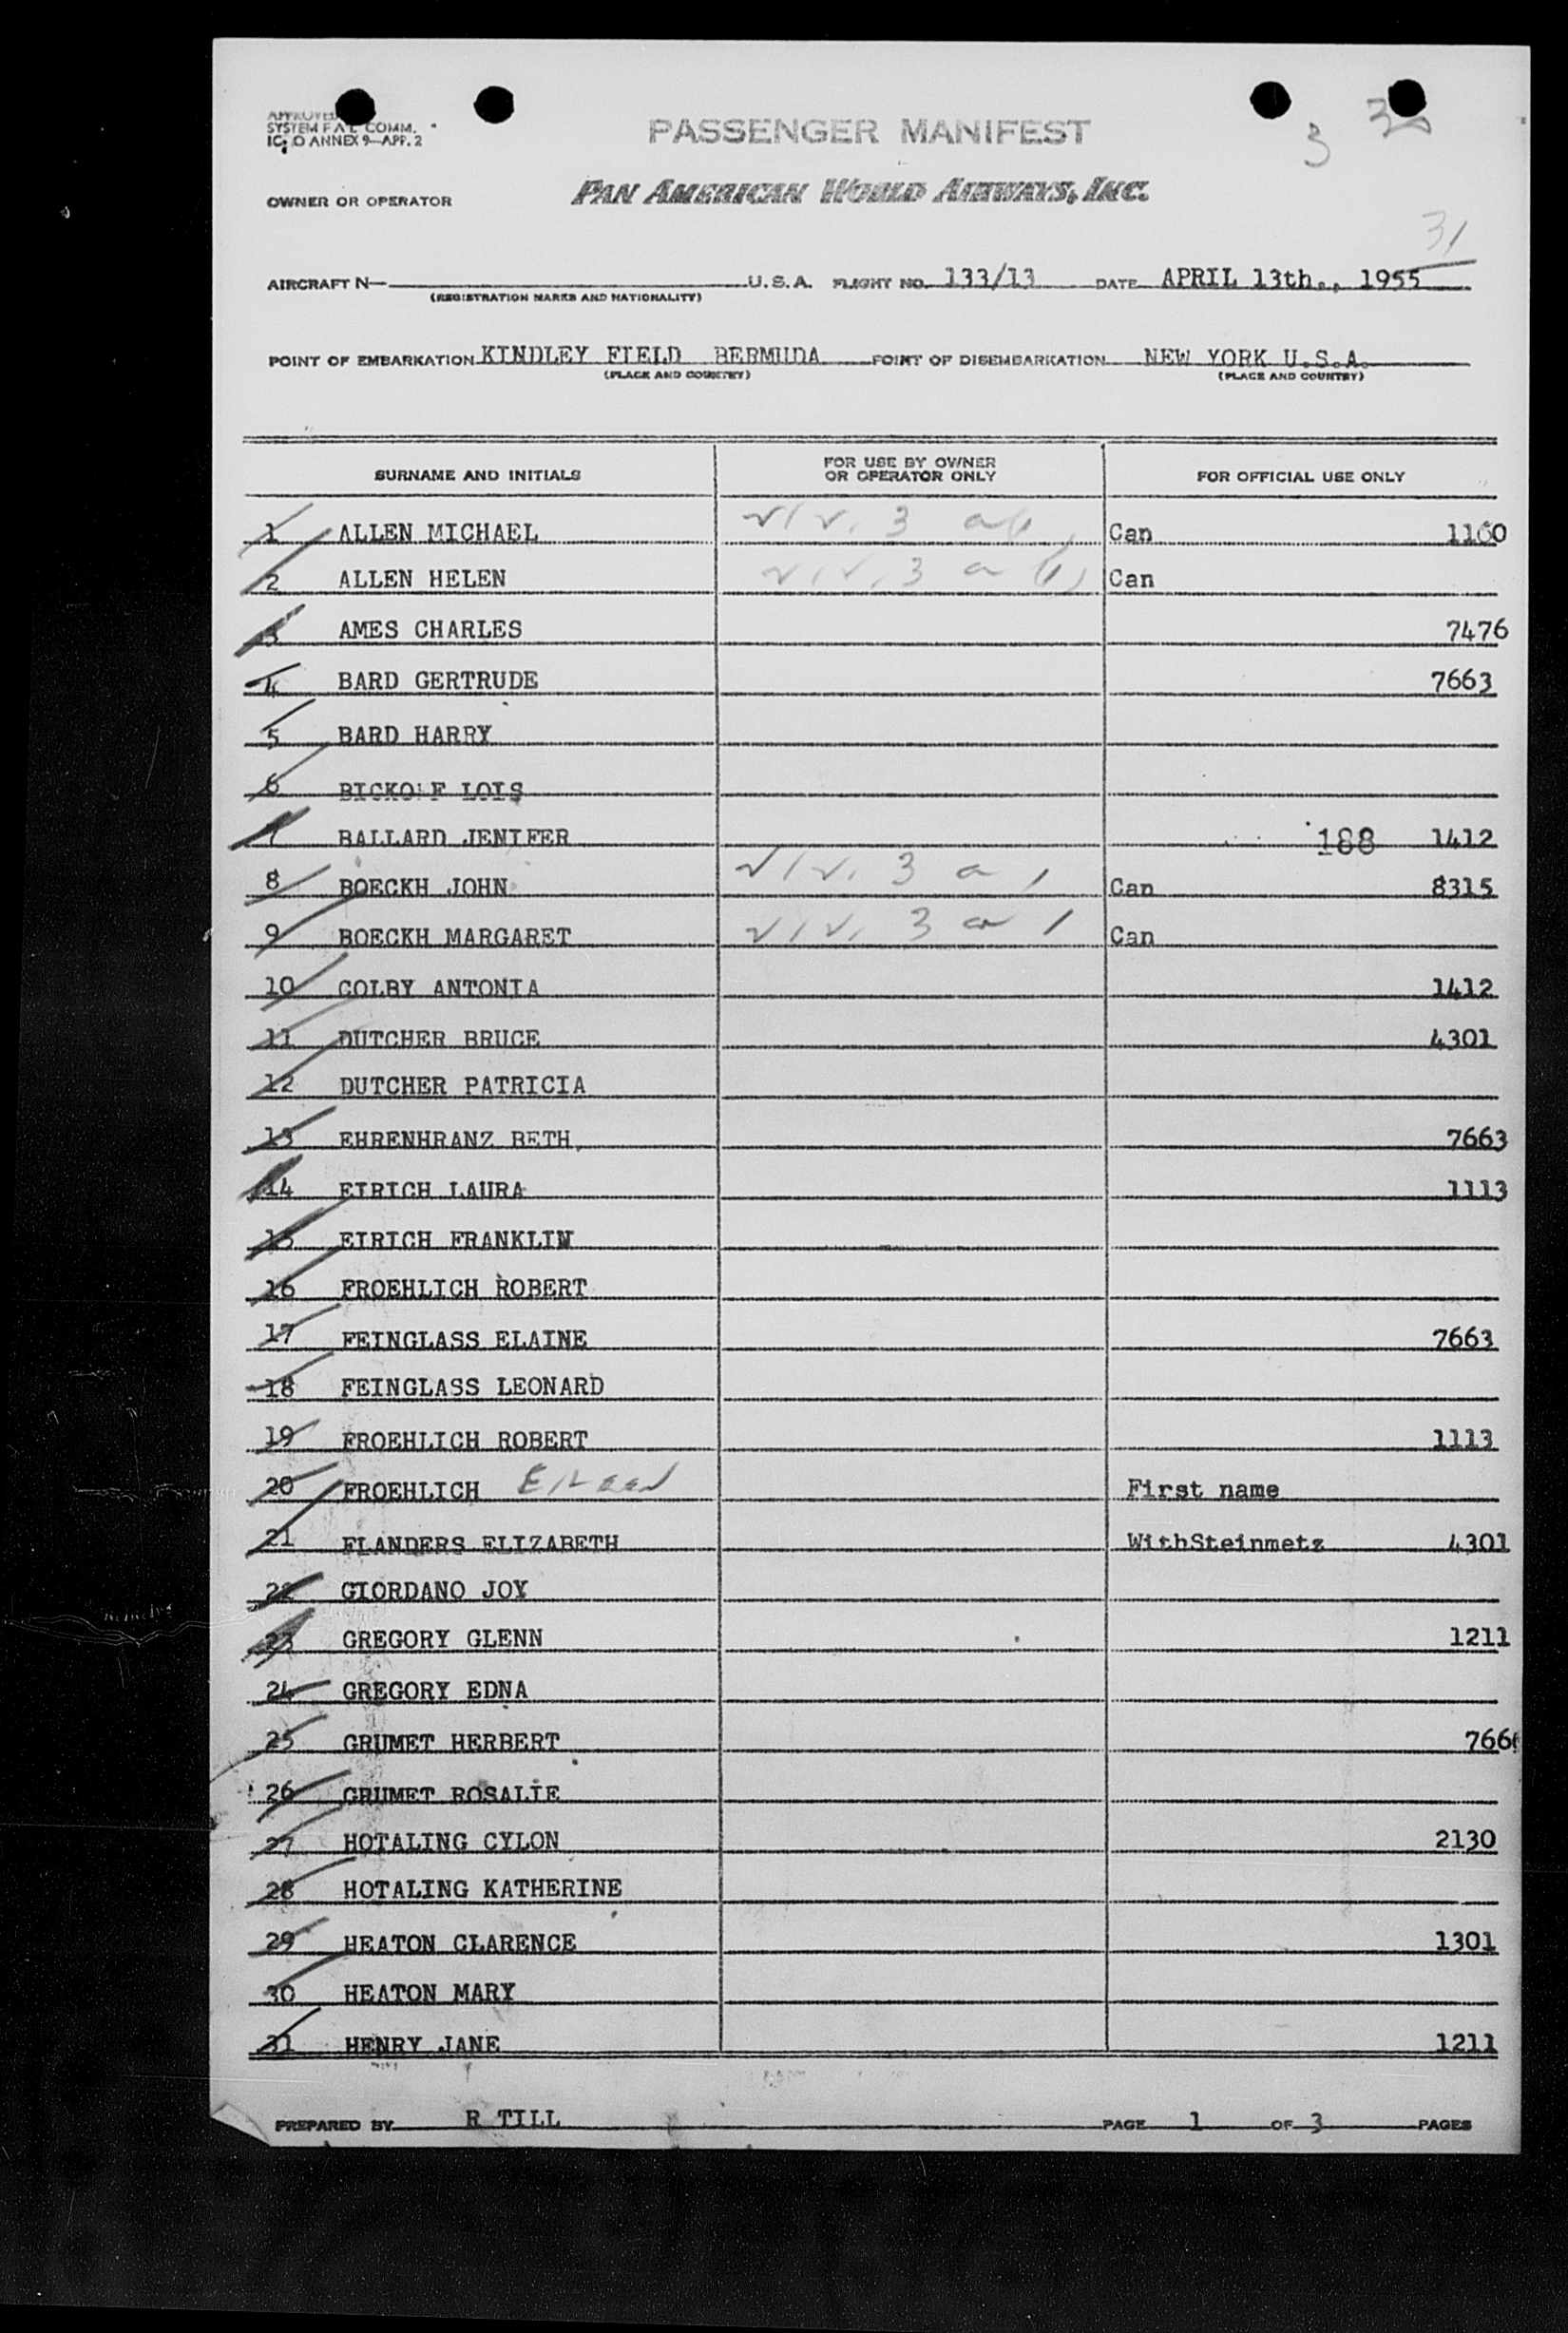 APPROVED
SYSTEM F A L COMM.
ICAO ANNEX 9—APP. 2
PASSENGER MANIFEST
3
OWNER OR OPERATOR PAN AMERICAN WORLD AIRWAYS, INC.
31
AIRCRAFT N— U.S.A. FLIGHT NO. 133/13 DATE APRIL 13th., 1955
(REGISTRATION MARKS AND NATIONALITY)
POINT OF EMBARKATION KINDLEY FIELD BERMUDA POINT OF DISEMBARKATION NEW YORK U.S.A.
(PLACE AND COUNTRY) (PLACE AND COUNTRY)
SURNAME AND INITIALS FOR USE BY OWNER OR OPERATOR ONLY FOR OFFICIAL USE ONLY
1 ALLEN MICHAEL Can 1160
2 ALLEN HELEN Can
3 AMES CHARLES 7476
4 BARD GERTRUDE 7663
5 BARD HARRY
6 LOIS
7 BALLARD JENIFER 188 1412
8 BOECKH JOHN Can 8315
9 BOECKH MARGARET Can
10 COLBY ANTONIA 1412
11 DUTCHER BRUCE 4301
12 DUTCHER PATRICIA
13 EHRENHRANZ BETH 7663
14 EIRICH LAURA 1113
15 EIRICH FRANKLIN
16 FROEHLICH ROBERT
17 FEINGLASS ELAINE 7663
18 FEINGLASS LEONARD
19 FROEHLICH ROBERT 1113
20 FROEHLICH First name
21 FLANDERS ELIZABETH WithSteinmetz 4301
22 GIORDANO JOY
23 GREGORY GLENN 1211
24 GREGORY EDNA
25 GRUMET HERBERT
26 GRUMET ROSALIE
27 HOTALING CYLON 2130
28 HOTALING KATHERINE
29 HEATON CLARENCE 1301
30 HEATON MARY
31 HENRY JANE 1211
PREPARED BY R TILL PAGE 1 OF 3 PAGES